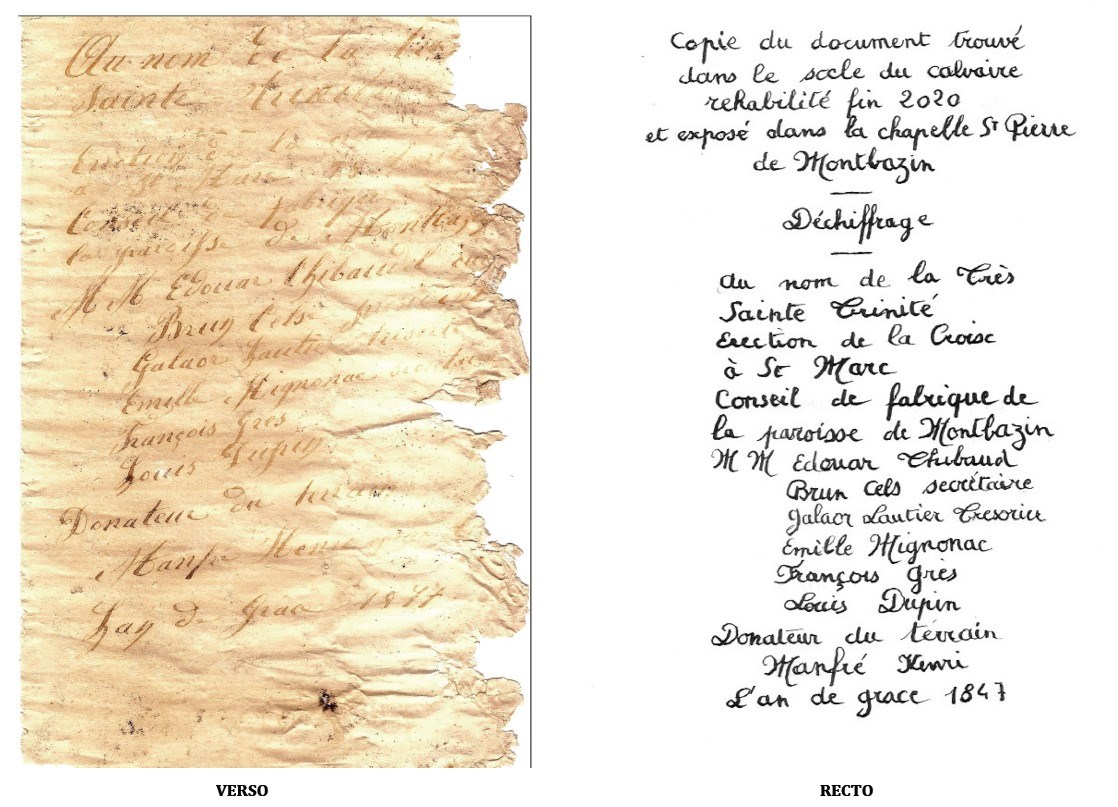 Au nom de la
Sainte
Erection la
a St Marc
Conseil d fabrique
la paroisse de
M M Edouar Thibaud
Brun Cels
Galaor Lautier
Emille Mignonac
François Gres
Louis Dupin
Donateur du terrain
Manfre Henri
Lan de Grace
VERSO
Copie du document trouvé
dans le socle du calvaire
rehabilité fin 2020
et exposé dans la chapelle St Pierre
de Montbazin
Déchiffrage
Au nom de la Très
Sainte Trinité
Erection de la Croise
à St Marc
Conseil de fabrique de
la paroisse de Montbazin
M M Edouar Thibaud
Brun Cels secrétaire
Galaor Lautier Tresorier
Emille Mignonac
François Grès
Louis Dupin
Donateur du terrain
Manfré Henri
L'an de grace 1847
RECTO